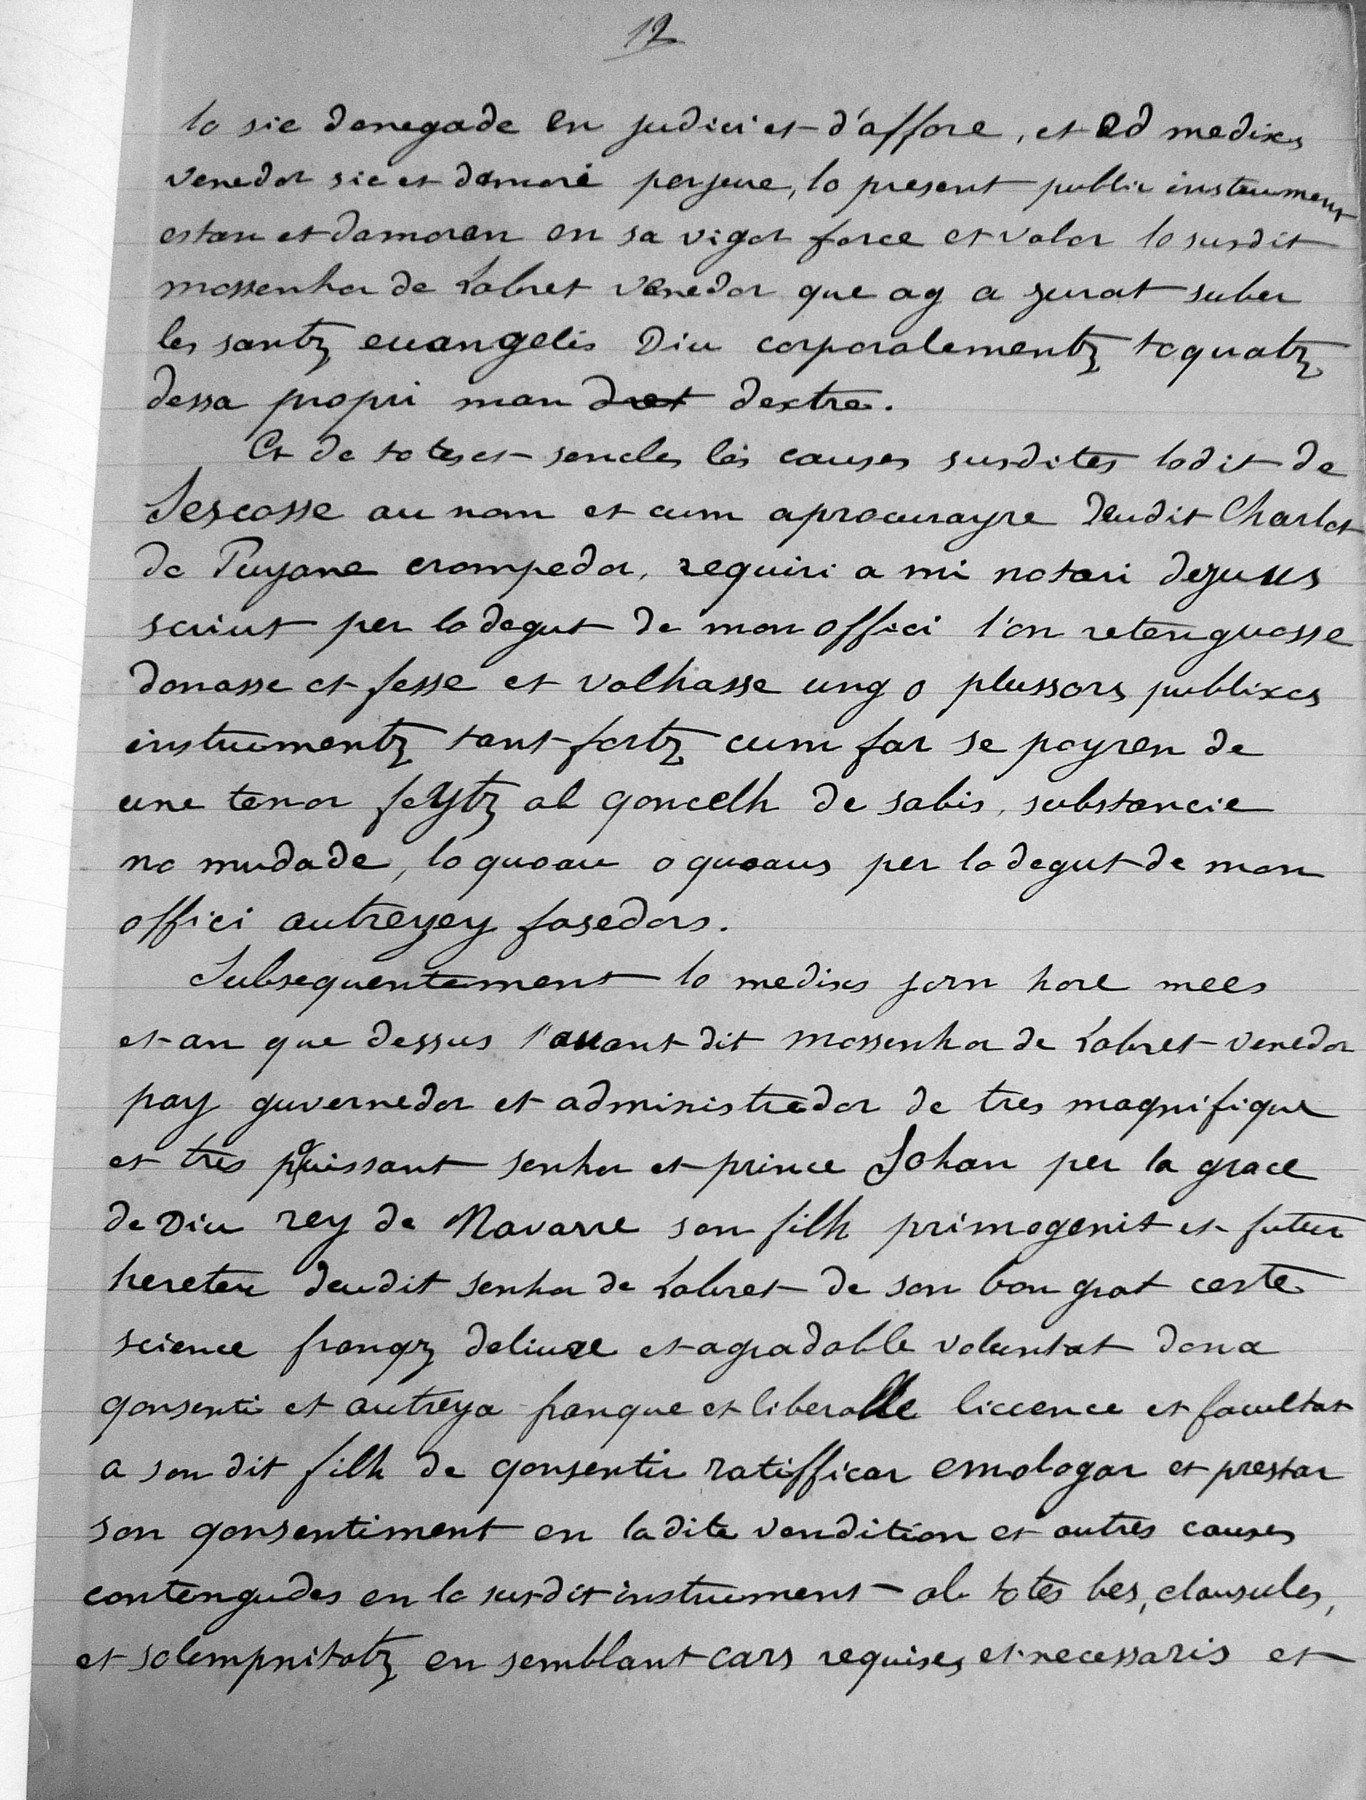 12
lo sie denegade en judici et d'affore, et ed medixs
venedor sie et damore perjure, lo present public instrument
estan et damoren en sa vigor force et valor lo susdit
mossenhor de Labret venedor que ag a jurat suber
les santz euangelis Diu corporalementz toquatz
dessa propri man dret dextre.
Et de totes et sencles les causes susdites lodit de
Sescosse au nom et cum aprocurayre deudit Charlot
de Puyane crompedor, requiri a mi notari dejuus
scriut per lo degut de mon offici l'on retenguosse
donasse et fesse et valhasse ung o plussors publixcs
instrumentz tant fortz cum far se poyren de
une tenor feytz ab goncelh de sabis, substancie
no mudade, lo quoau o quoaus per lo degut de mon
offici autreyey fasedors.
Subsequentement lo medixs jorn hore mees
et an que dessus l'auant dit mossenhor de Labret venedor
pay guvernedor et administredor de tres magnifique
et tres puissant senhor et prince Johan per la grace
de Diu rey de Navarre son filh primogenit et futur
hereter deudit senhor de Labret de son bon grat certe
science franqz deliure et agradable voluntat dona
gonsenti et autreya franque et liberalle liccence et facultat
a son dit filh de gonsentir ratifficar emologar et prestar
son gonsentiment en ladite vendition et autres causes
contengudes en lo susdit instrument ab totes bes, clausules,
et solempnitatz en semblant cars requises et necessaris et